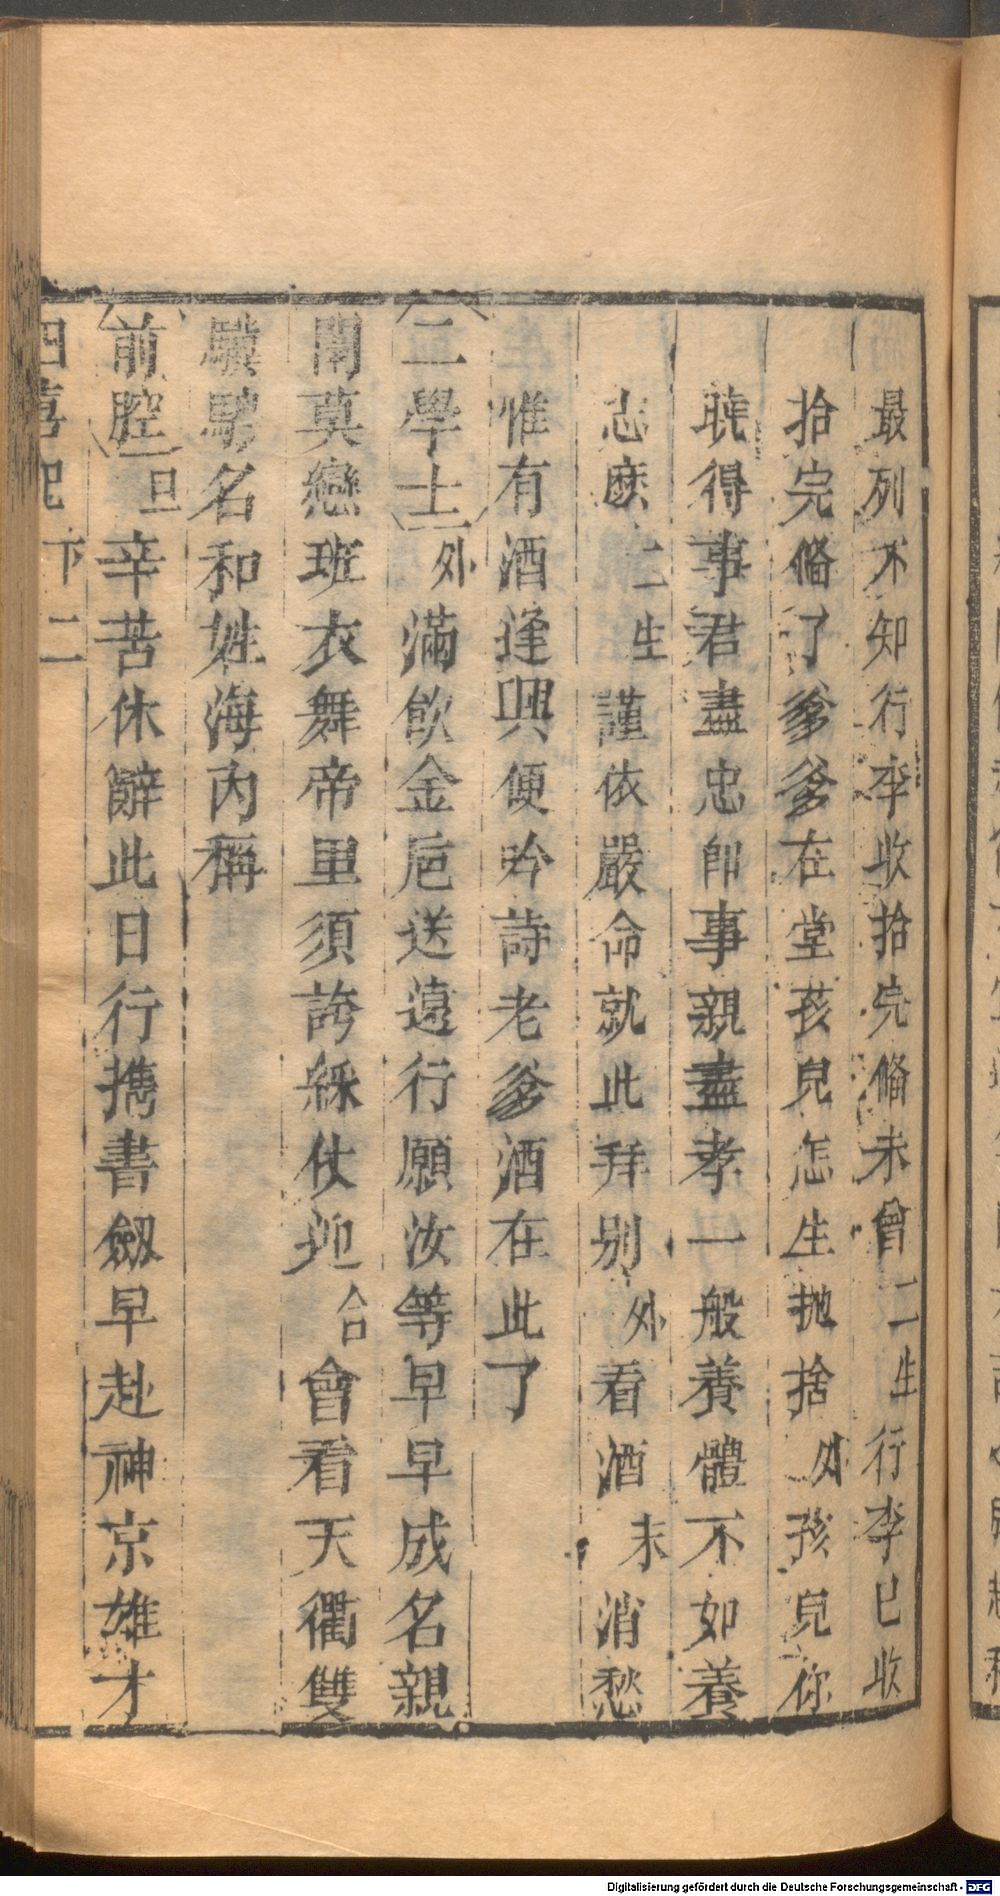 最列不知行李收拾完俻未曾二生行李已收
拾完俻了爹爹在堂孩兒怎生抛捨外孩兒你
豈不曉得事君盡忠卽事親盡孝一般養體不如養
志麽二生謹依嚴命就此拜别外看酒末消愁
惟有酒逢興便吟詩老爹酒在此了
二學士外滿飲金巵送遠行願汝等早早成名親
闈莫戀班衣舞帝里須誇綵仗迎合會看天衢雙
驥騁名和姓海内稱
前腔旦辛苦休辭此日行攜書劔早赴神京雄才
四喜記 下 二
Digitalisierung gefördert durch die Deutsche Forschungsgemeinschaft - DFG